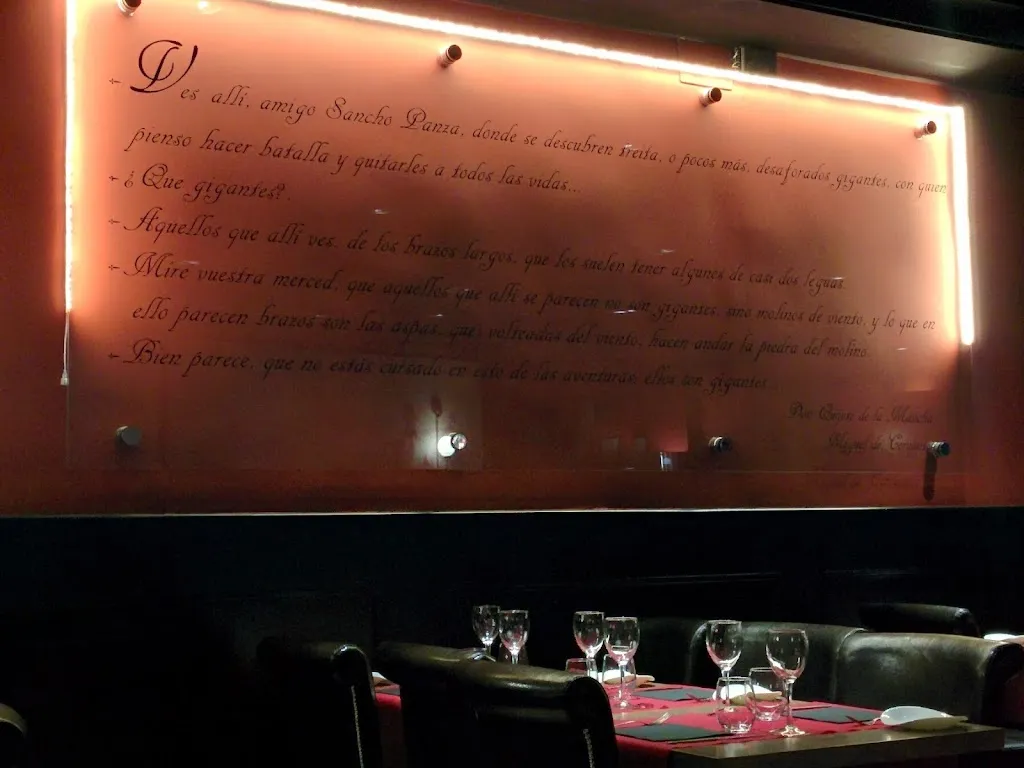 - Ves alli, amigo Sancho Panza, donde se descubren treita, o pocos más, desaforados gigantes, con quien
pienso hacer batalla y quitarles a todos las vidas...
- ¿Que gigantes?.
- Aquellos que alli ves, de los brazos largos, que los suelen tener algunos de casi dos leguas.
- Mire vuestra merced, que aquellos que alli se parecen no son gigantes, sino molinos de viento, y lo que en
ello parecen brazos son las aspas, que, volteadas del viento, hacen andar la piedra del molino.
- Bien parece, que no estás cursado en esto de las aventuras: ellos son gigantes
Don Quijote de la Mancha
Miguel de